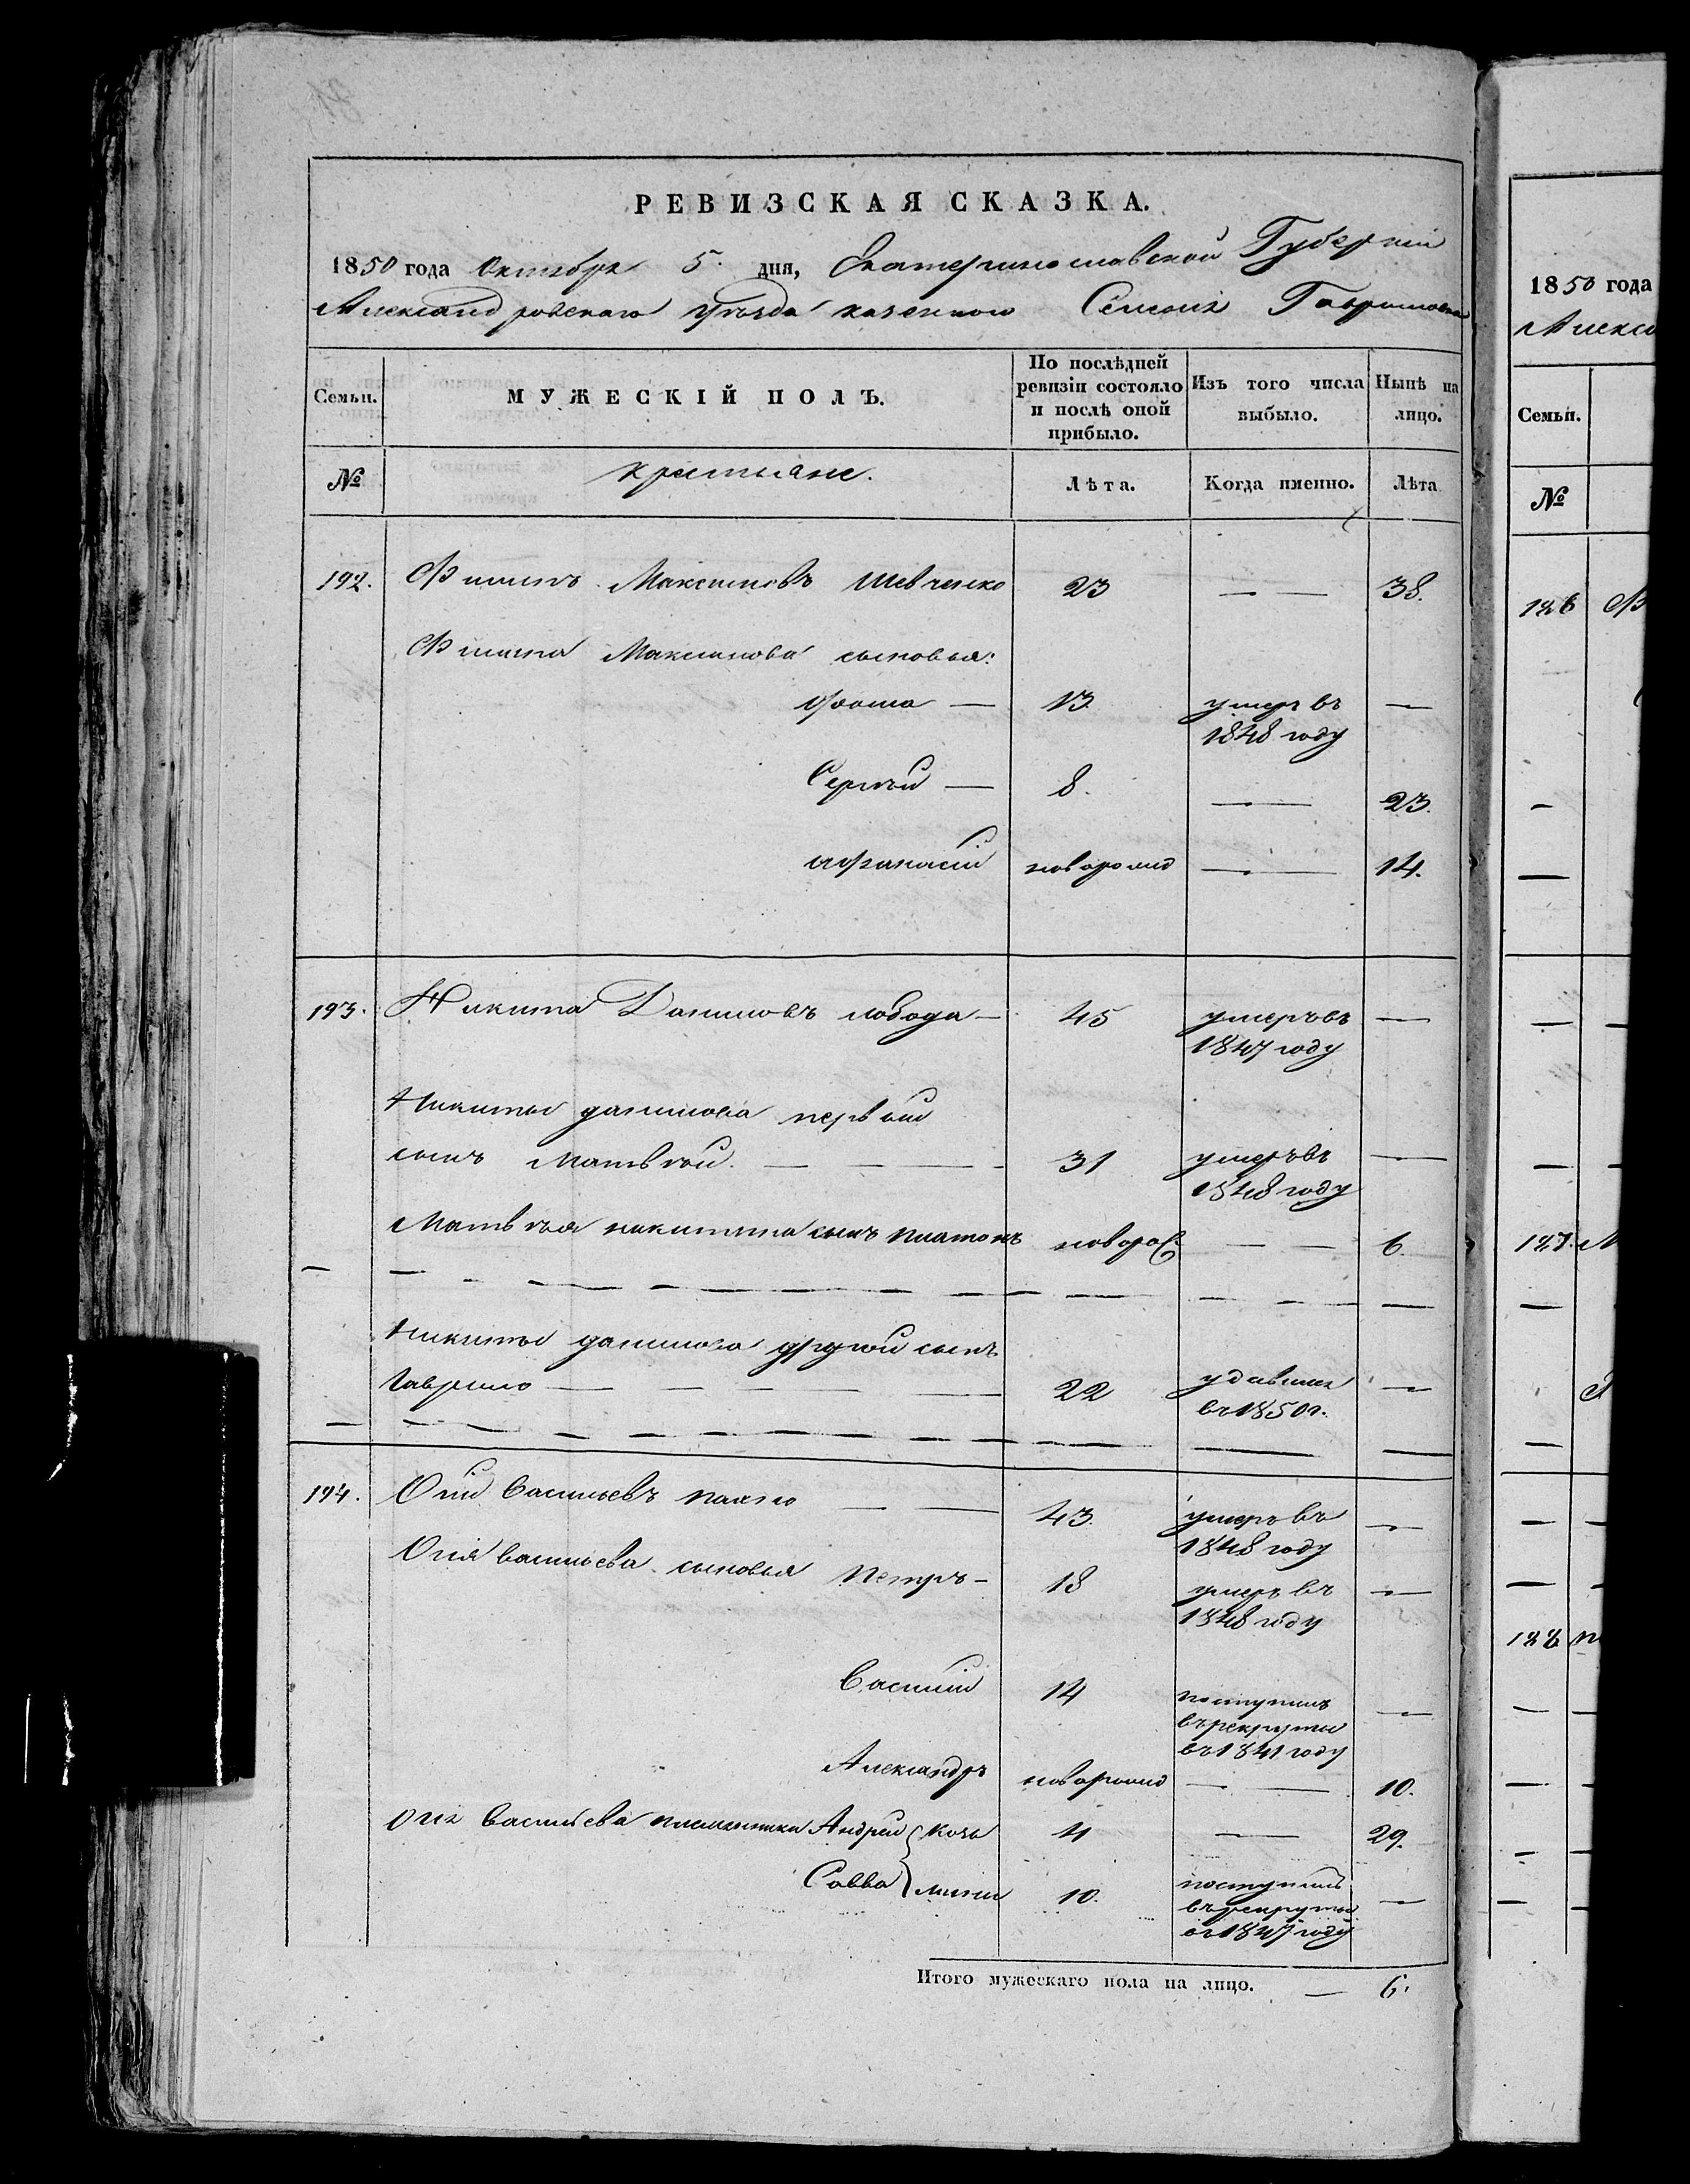 РЕВИЗСКАЯ СКАЗКА.
1850 года Октября 5. дня, Екатеринославской Губернии
Александровского уезда казенного Селения Гавриловки
Семьи.
МУЖЕСКІЙ ПОЛЪ.
По послѣдней ревизіи состояло и послѣ оной прибыло.
Изъ того числа выбыло.
Нынѣ на лицо.
№
крестьяне.
Лѣта.
Когда именно.
Лѣта
192. Филипъ Максимовъ Шевченко 23 — — 38.
Филипа Максимова сыновья:
Фома — 13. умеръ въ —
1848 году
Сергѣй — 8. — — 23.
Афанасій новорожд — — 14.
193. Никита Даниловъ Лобода — 45 умеръ въ —
1847 году
Никиты Данилова первый
сынъ Матвѣй. — — — 31 умеръ въ —
1848 году
Матвѣя Никитина сынъ Платонъ новорож — — 6.
Никиты Данилова другой сынъ
Гаврило — — — — 22 удавился —
въ 1850 г.
194. Васильевъ — — 43. умеръ въ —
1848 году
Васильева сыновья Петръ — 18 умеръ въ —
1848 году
Василій 14 поступилъ —
въ рекруты
въ 1841 году
Александръ новорожд — — 10.
Васильева племянники Андрей 29.
Савва 10. поступилъ —
въ рекруты
въ 1847 году
Итого мужескаго пола на лицо. — 6.
1850 года
Алекса
Семьи.
№
186
187.
188